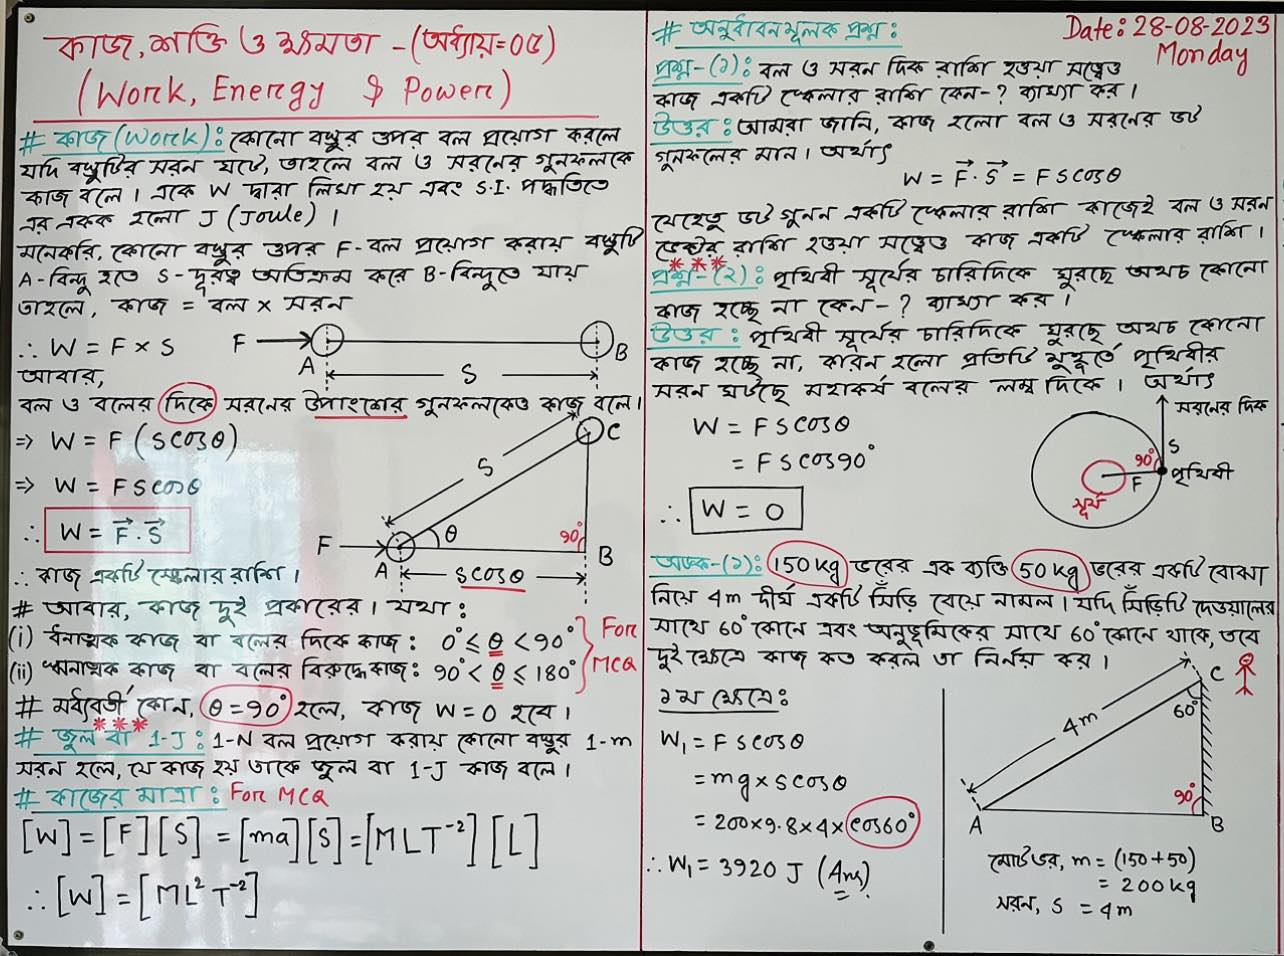 কাজ, শক্তি ও ক্ষমতা - (অধ্যায়=০৫)
(Work, Energy & Power)
# কাজ (Work): কোনো বস্তুর ওপর বল প্রয়োগ করলে
যদি বস্তুটির সরন ঘটে, তাহলে বল ও সরনের গুনফলকে
কাজ বলে। একে W দ্বারা লিখা হয় এবং S.I. পদ্ধতিতে
এর একক হলো J (Joule)।
মনেকরি, কোনো বস্তুর ওপর F-বল প্রয়োগ করায় বস্তুটি
A-বিন্দু হতে S-দূরত্ব অতিক্রম করে B-বিন্দুতে যায়
তাহলে, কাজ = বল × সরন
∴ W = F × S
F A S B
আবার,
বল ও বলের দিকে সরনের উপাংশের গুনফলকেও কাজ বলে।
⇒ W = F (S cosθ)
⇒ W = F S cosθ
∴ W = F⃗ . S⃗
F A S θ C 90° B
S cosθ
∴ কাজ একটি স্কেলার রাশি।
# আবার, কাজ দুই প্রকারের। যথা:
(i) ধনাত্মক কাজ বা বলের দিকে কাজ: 0° ≤ θ < 90°
(ii) ঋনাত্মক কাজ বা বলের বিরুদ্ধে কাজ: 90° < θ ≤ 180°
For MCQ
# মধ্যবর্তী কোন, θ = 90° হলে, কাজ W = 0 হবে।
***
# জুল বা 1-J: 1-N বল প্রয়োগ করায় কোনো বস্তুর 1-m
সরন হলে, যে কাজ হয় তাকে জুল বা 1-J কাজ বলে।
# কাজের মাত্রা: For MCQ
[W] = [F][S] = [ma][S] = [MLT⁻²][L]
∴ [W] = [ML²T⁻²]
# অনুধাবনমূলক প্রশ্ন:
Date: 28-08-2023
Monday
প্রশ্ন-(১): বল ও সরন দিক রাশি হওয়া সত্ত্বেও
কাজ একটি স্কেলার রাশি কেন-? ব্যাখ্যা কর।
উত্তর: আমরা জানি, কাজ হলো বল ও সরনের ডট
গুনফলের মান। অর্থাৎ
W = F⃗ . S⃗ = F S cosθ
যেহেতু ডট গুনন একটি স্কেলার রাশি কাজেই বল ও সরন
ভেক্টর রাশি হওয়া সত্ত্বেও কাজ একটি স্কেলার রাশি।
***
প্রশ্ন-(২): পৃথিবী সূর্যের চারিদিকে ঘুরছে অথচ কোনো
কাজ হচ্ছে না কেন-? ব্যাখ্যা কর।
উত্তর: পৃথিবী সূর্যের চারিদিকে ঘুরছে অথচ কোনো
কাজ হচ্ছে না, কারন হলো প্রতিটি মুহূর্তে পৃথিবীর
সরন ঘটছে মহাকর্ষ বলের লম্ব দিকে। অর্থাৎ
W = F S cosθ
= F S cos90°
∴ W = 0
সরনের দিক
S
90°
F পৃথিবী
সূর্য
অঙ্ক-(১): 150 kg ভরের এক ব্যক্তি 50 kg ভরের একটি বোঝা
নিয়ে 4m দীর্ঘ একটি সিঁড়ি বেয়ে নামল। যদি সিঁড়িটি দেওয়ালের
সাথে 60° কোনে এবং অনুভূমিকের সাথে 60° কোনে থাকে, তবে
দুই ক্ষেত্রে কাজ কত করল তা নির্নয় কর।
১ম ক্ষেত্রে:
W₁ = F S cosθ
= mg × S cosθ
= 200 × 9.8 × 4 × cos60°
∴ W₁ = 3920 J (Ans)
C
60°
4m
90°
A B
মোট ভর, m = (150+50)
= 200 kg
সরন, S = 4m